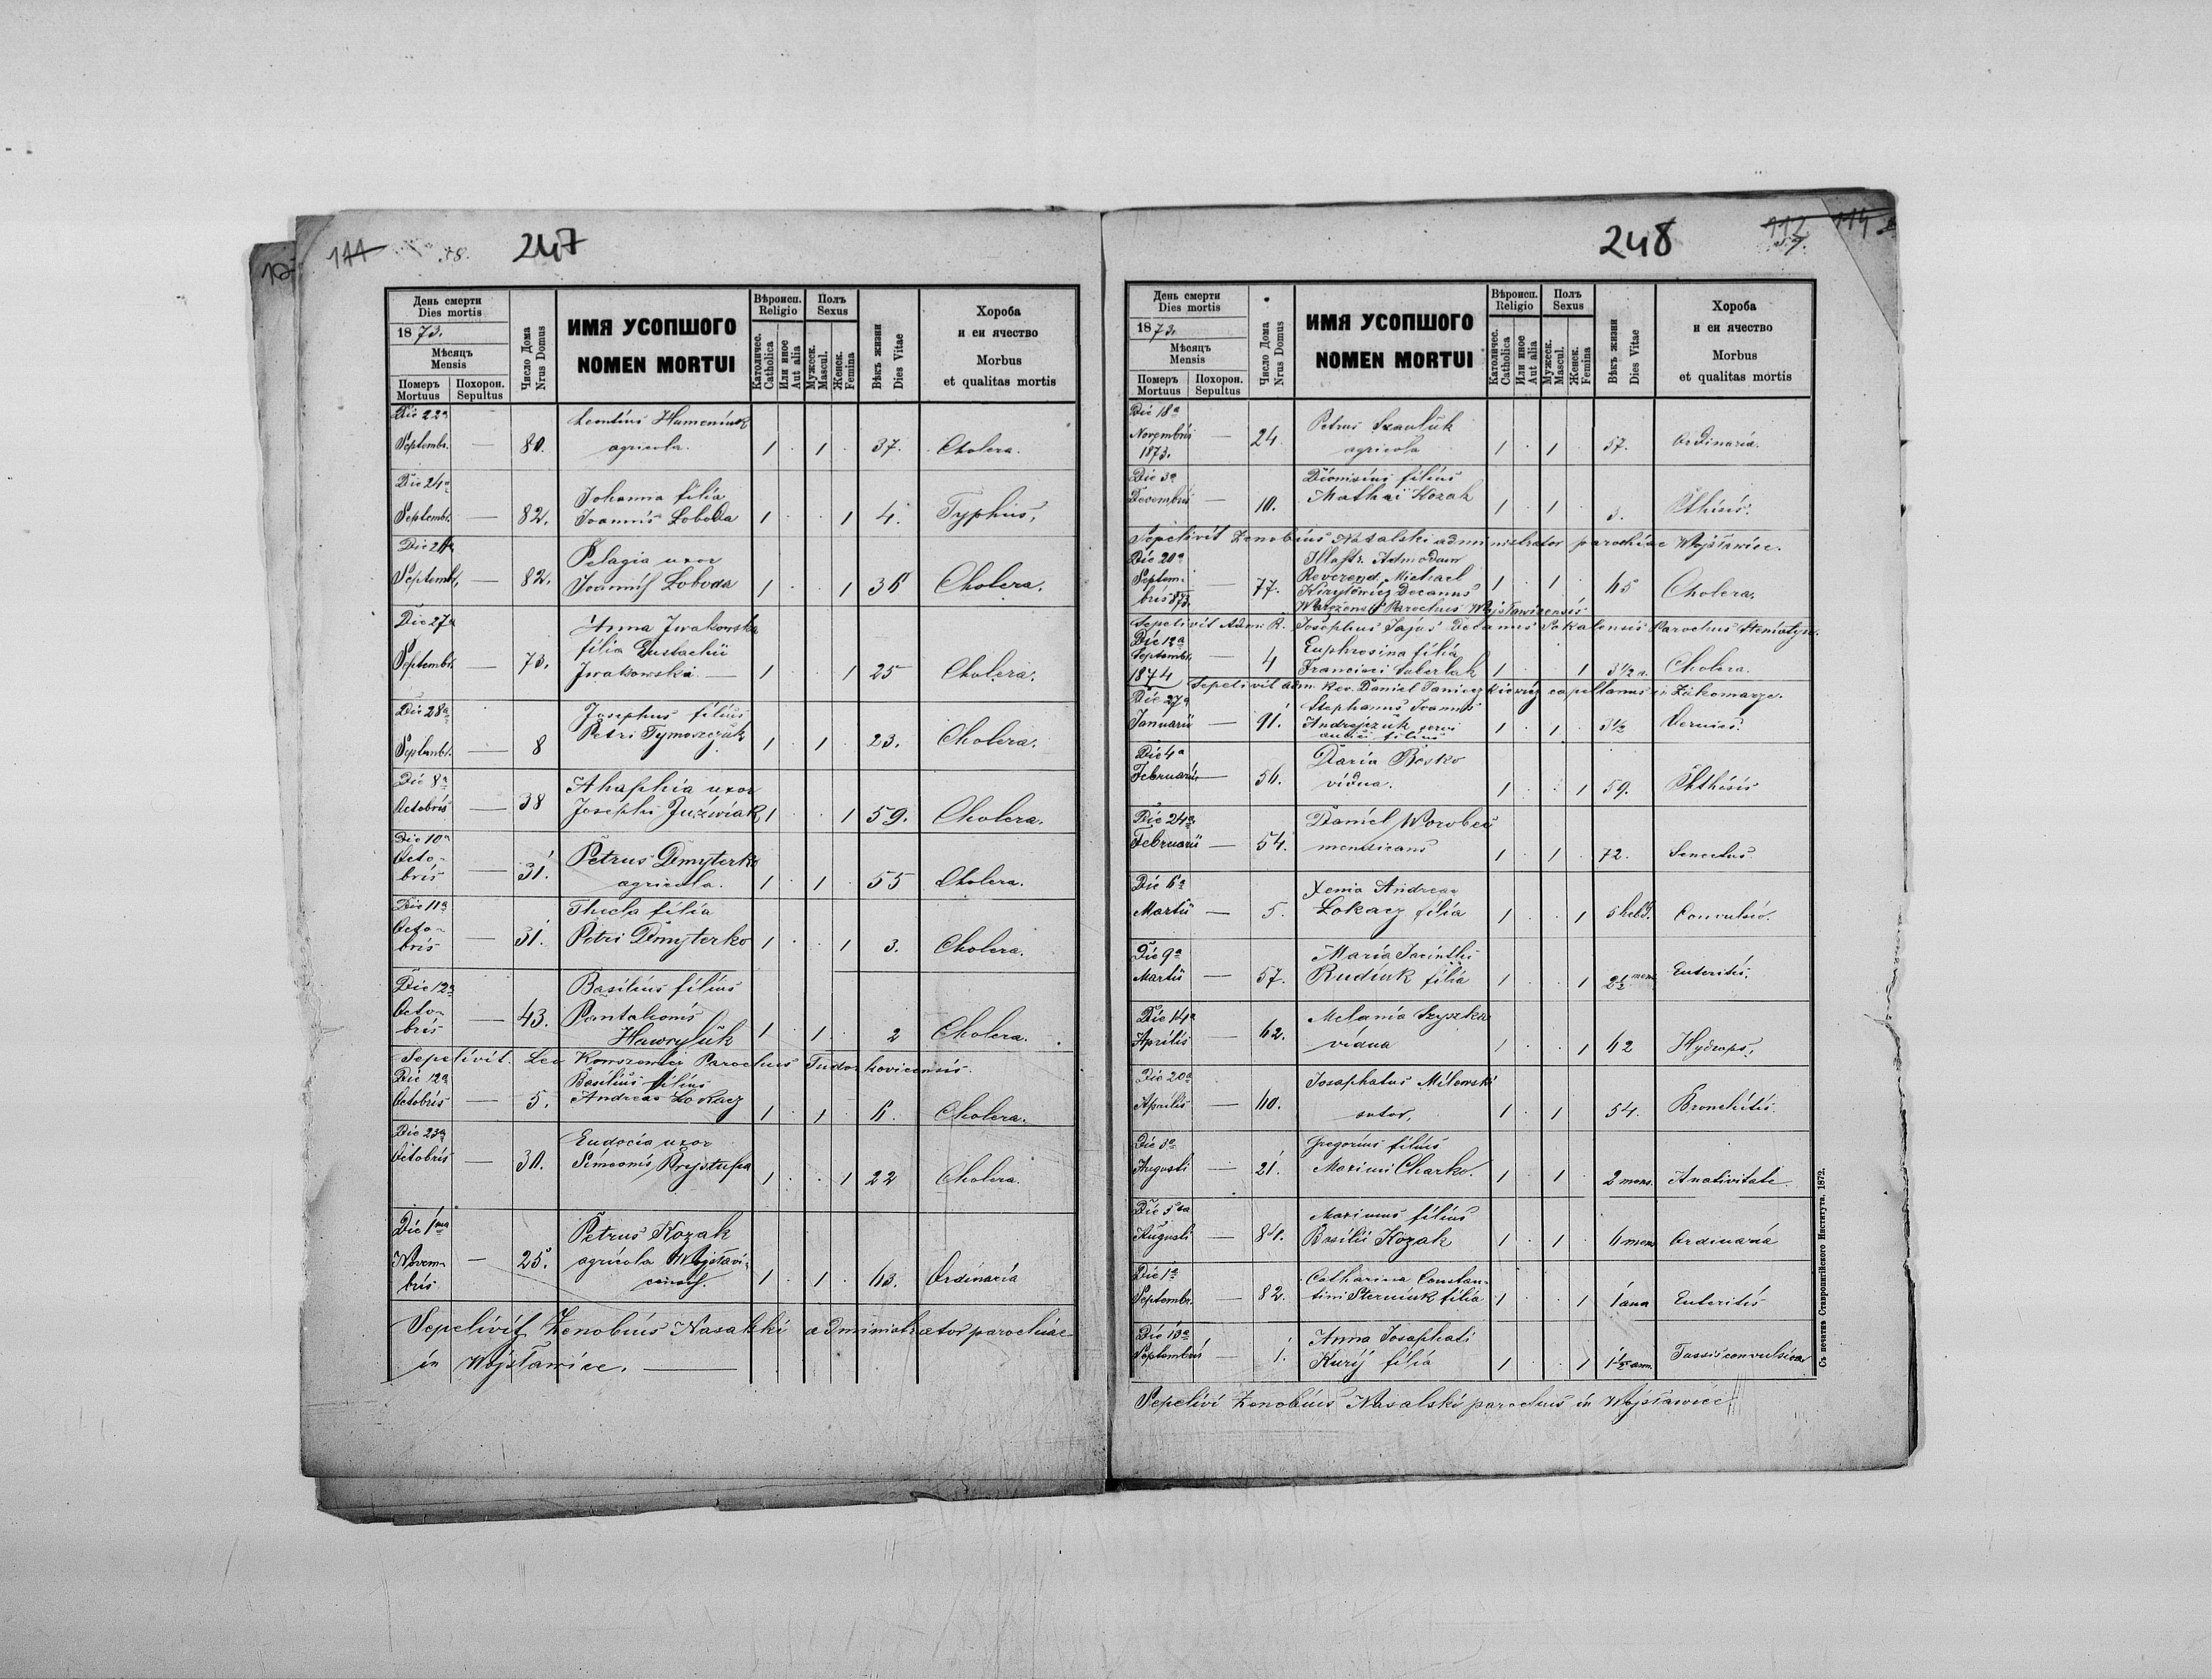 111 78. 247
День смерти
Dies mortis
1873.
Мѣсяцъ
Mensis
Померъ Mortuus
Похорон. Sepultus
Число Дома
Nrus Domus
ИМЯ УСОПШОГО
NOMEN MORTUI
Вѣроисп.
Religio
Католичес.
Catholica
Или иное
Aut alia
Полъ
Sexus
Мужеск.
Mascul.
Женск.
Femina
Вѣкъ жизни
Dies Vitae
Хороба
и еи ячество
Morbus
et qualitas mortis
Die 22a Septembr. — 80. Leontius Humeniuk
agricola. 1 . 1 . 37. Cholera.
Die 24a Septembr. — 82. Johanna filia
Joannis Łoboda 1 . . 1 4. Typhus,
Septembr. — 82. Pelagia uxor
Joannis Łoboda 1 . . 1 36 Cholera.
Die 27a Septembr. — 73. Anna Iwakowska
filia Eustachii
Iwakowski — 1 . . 1 25 Cholera.
Die 28a Septembr. — 8 Josephus filius
Petri Tymoszczuk 1 . 1 . 23. Cholera.
Die 8a Octobris — 38 Ahaphia uxor
Josephi Juźwiak 1 . . 1 59. Cholera.
Die 10a Octo-
bris — 31. Petrus Dmyterko
agricola. 1 . 1 . 55 Cholera.
Die 11a Octo-
bris — 31. Thecla filia
Petri Dmyterko 1 . . 1 3. Cholera.
Die 12a Octo-
bris — 43. Basilius filius
Pantaleonis
Hawryluk 1 . 1 . 2 Cholera.
Sepelivit. Leo Parochus
Die 12a Octobris — 5. Basilius filius
Andreae Łokacz 1 . 1 . 6. Cholera.
Die 23a Octobris — 30. Eudocia uxor
Simeonis Prystupa 1 . . 1 22 Cholera.
Die 1ma Novem-
bris — 25. Petrus Kozak
agricola 1 . 1 . 63. Ordinaria
Sepelivit Zenobius Nasalski administrator parochiae
in Wojsławice. —
248 112 114
День смерти
Dies mortis
1873.
Мѣсяцъ
Mensis
Померъ Mortuus
Похорон. Sepultus
Число Дома
Nrus Domus
ИМЯ УСОПШОГО
NOMEN MORTUI
Вѣроисп.
Religio
Католичес.
Catholica
Или иное
Aut alia
Полъ
Sexus
Мужеск.
Mascul.
Женск.
Femina
Вѣкъ жизни
Dies Vitae
Хороба
и еи ячество
Morbus
et qualitas mortis
Die 18a Novembris
1873. — 24. Petrus
agricola 1 . 1 . 57. Ordinaria.
Die 3a Decembris — 10. Dionisius filius
Mathaei Kozak 1 . 1 . 3. Phthisis.
Sepelivit Zenobius Nasalski administrator parochiae Wojsławice.
Die 20a
Septem-
bris 873. — 77. Illustr. Admodum
Reverend. Michael
Kiryłowicz Decanus
Parochus Wojsławicensis 1 . 1 . 65 Cholera.
Sepelivit Adm. R. Josephus Decanus Sokalensis Parochus
Die 12a
Septembr.
1874 — 4 Euphrosina filia
Francisci 1 . . 1 3 1/2 a. Cholera.
Sepelivit adm. Rev. Daniel capellanus
Die 27a
Januarii — 91. Stephanus Joannis
Andrejczuk servi
filius 1 . 1 . 3 1/2
Die 4a
Februarii — 56. Daria Bosko
vidua. 1 . . 1 59. Phthisis
Die 24a
Februarii — 54. Daniel Worobec
mendicans 1 . 1 . 72. Senectus.
Die 6a
Martii — 5. Xenia Andreae
Łokacz filia 1 . . 1 5 hebd. Convulsio.
Die 9a
Martii — 57. Maria Jacinthi
Rudiuk filia 1 . . 1 2 1/2 mens. Enteritis.
Die 14a
Aprilis — 62. Melania Szyszka
vidua 1 . . 1 62 Hydrops.
Die 20a
Aprilis — 40. Josaphatus Milewski
sutor, 1 . 1 54. Bronchitis.
Die 3a
Augusti — 21. Gregorius filius
Maximi Charko. 1 . 1 . 2 mens. A nativitate
Augusti — 81. Maximus filius
Basilii Kozak 1 . 1 . 6 mens Ordinaria
Die 1a
Septembr. — 82. Catharina Constan-
tini filia 1 . . 1 Enteritis
Septembris — 1. Anna Josaphati
Kurij filia 1 . . 1 1 1/2 ann. Tussis convulsiva
Sepelivi Zenobius Nasalski parochus in Wojsławice
Съ печатнѣ Ставропигійского Института. 1872.